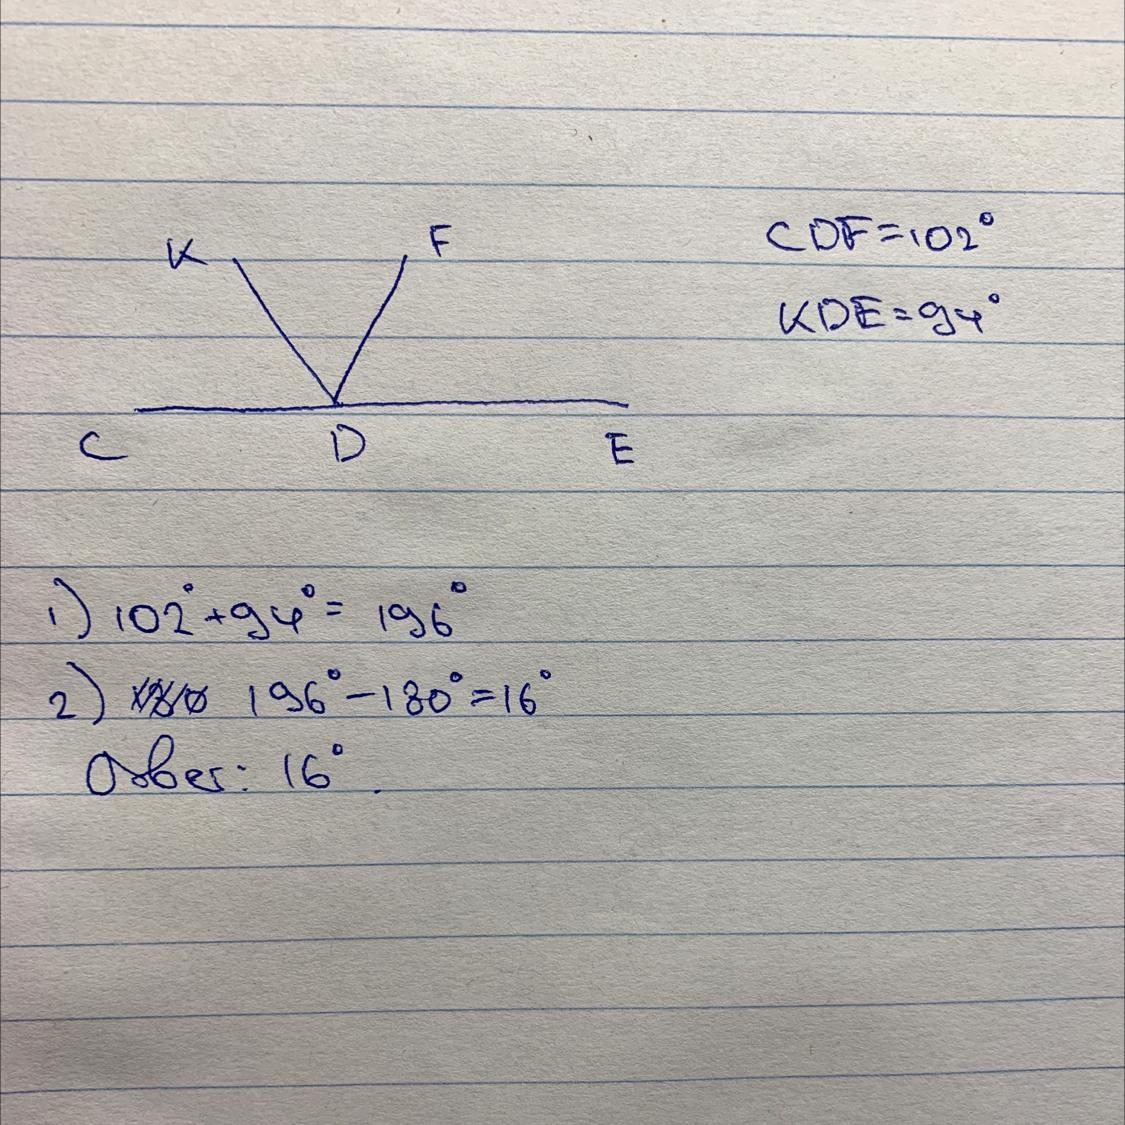 K F
CDF=102°
KDE=94°
C D E
1) 102°+94°= 196°
2) 196°-180°=16°
Ответ: 16°.